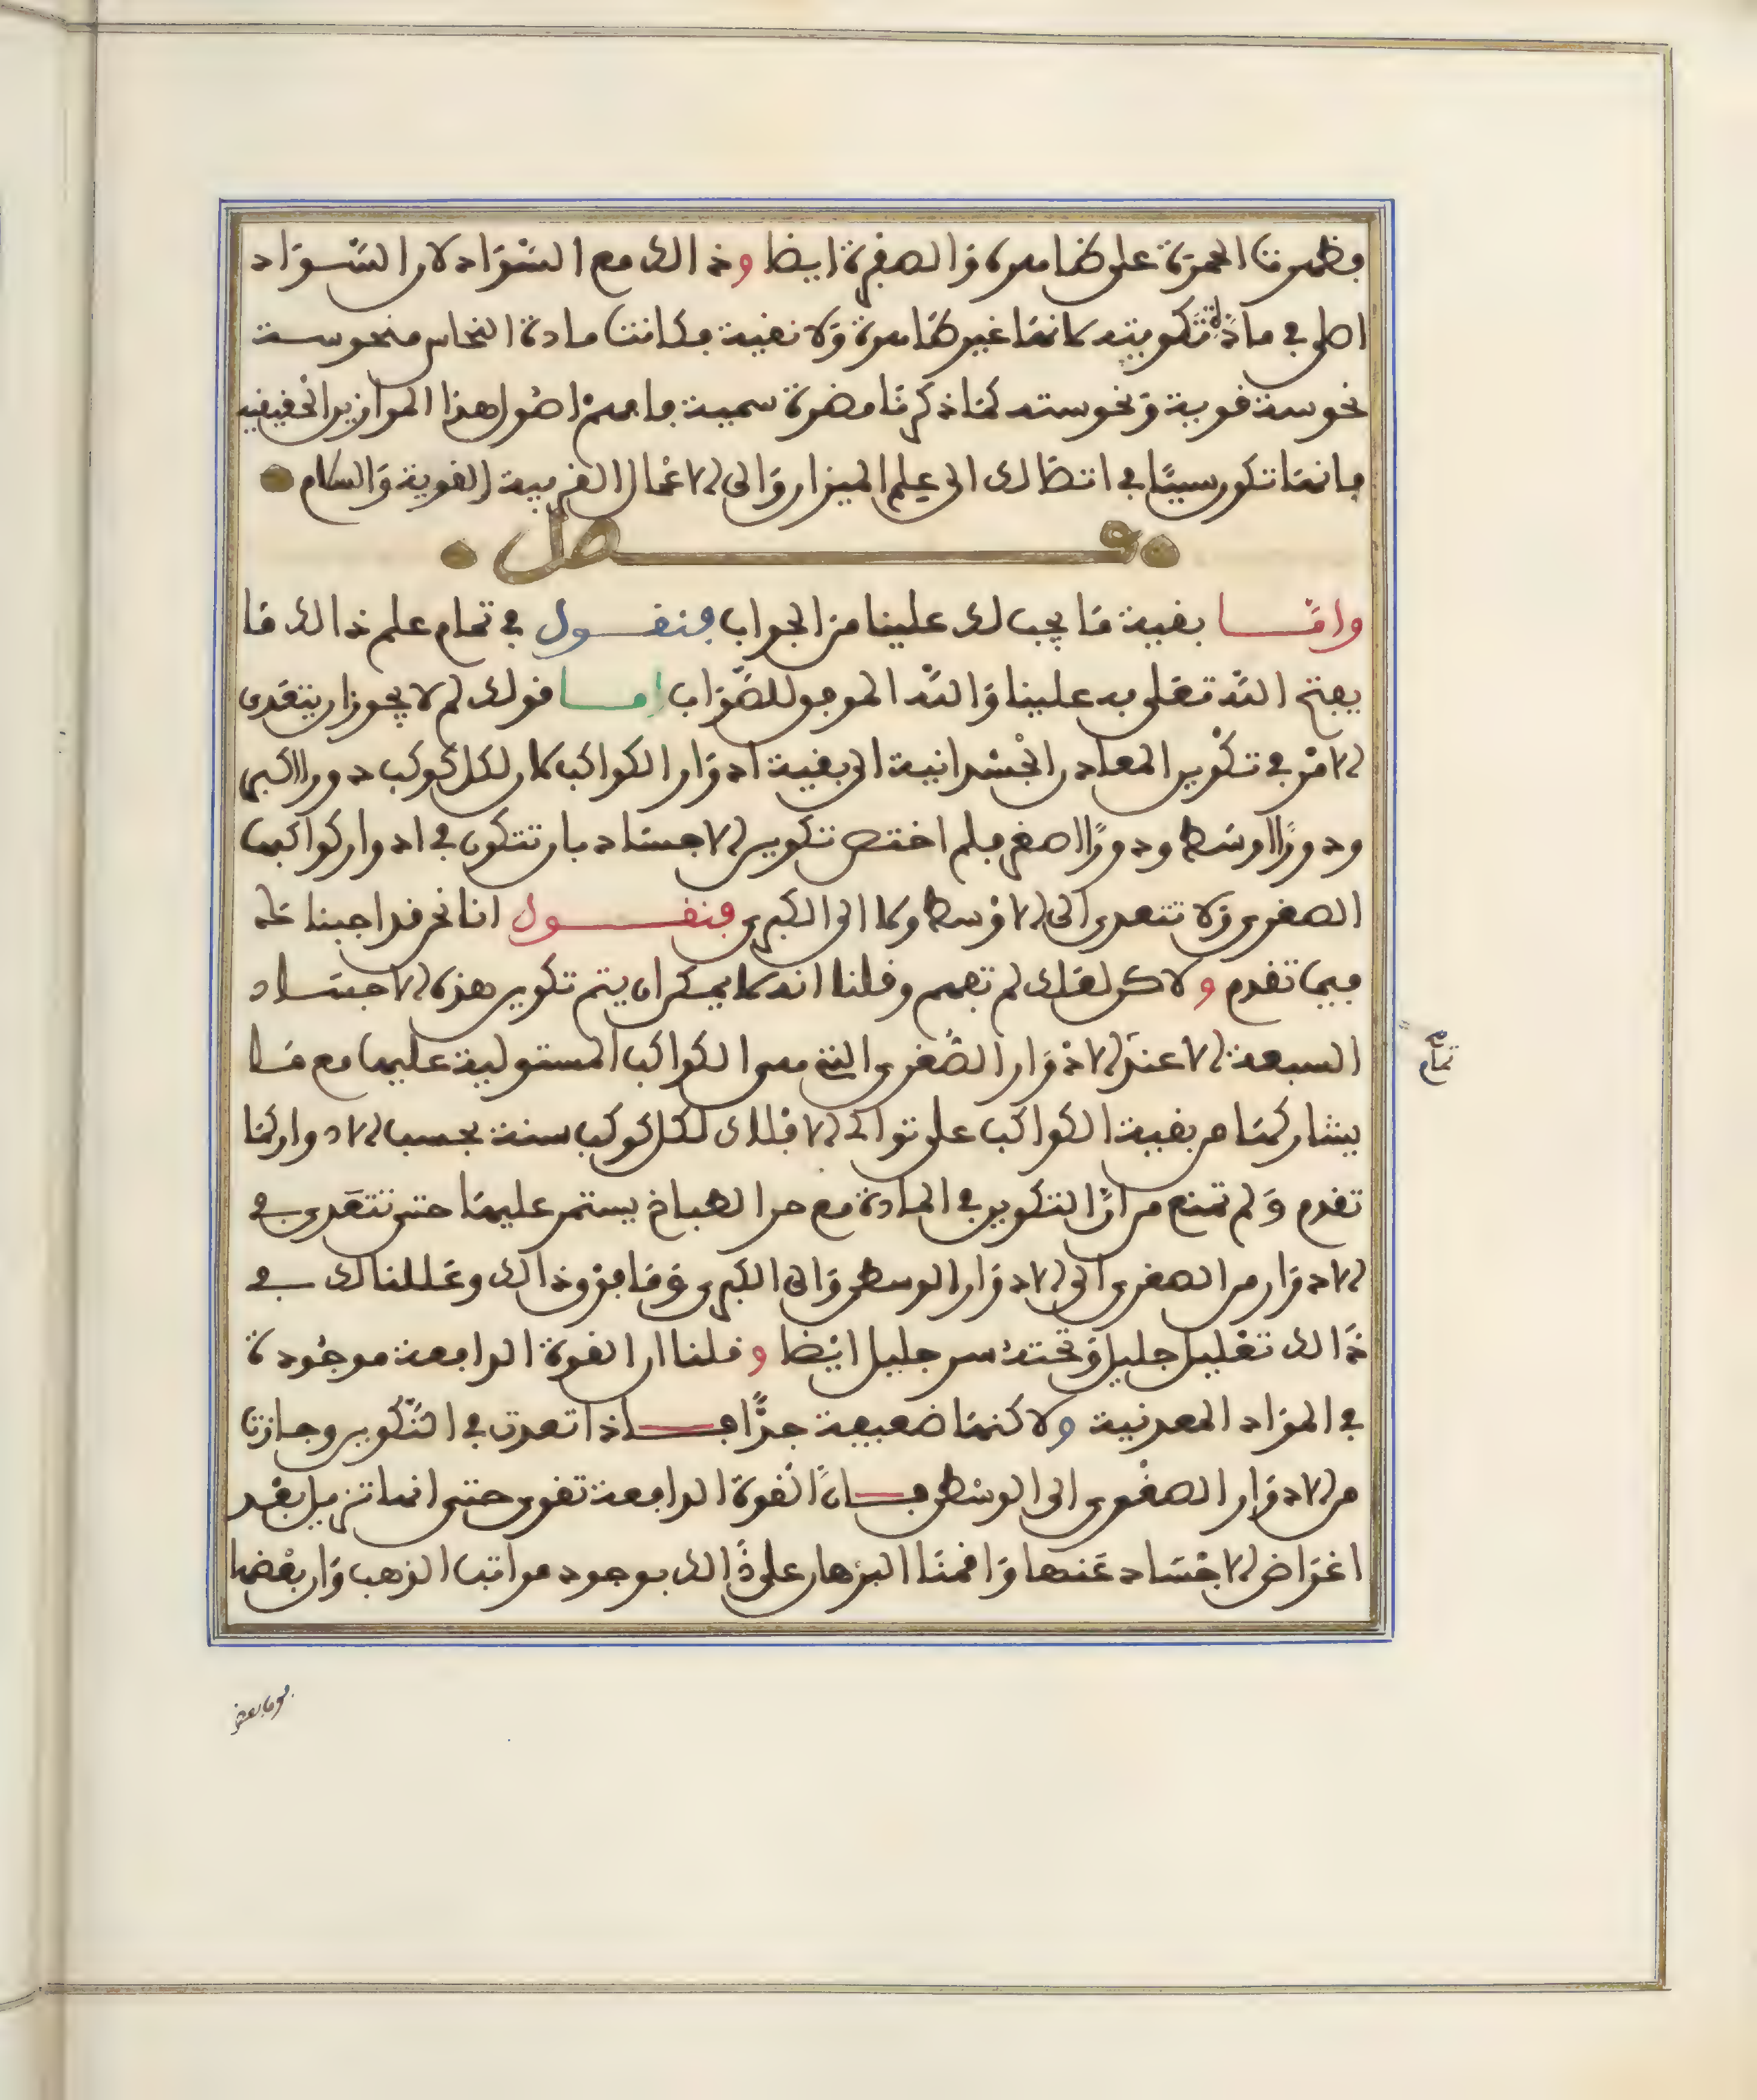 فظهرت الحمرة على ظاهره والصفرة ايضا وذالك مع السواد لان السواد
اصل في مادة تكوينه لانها غير طاهرة ولا نقية فكانت مادة النحاس منحوسة
نحوسة قوية ونحوسته كما ذكرنا مضرة سمية فافهم اصول هذا الموازين الحقيقية
فانها تكون سببا في اتصالك الى علم الميزان والى الاعمال القريبة القوية والسلام
فصل
واما بقية ما يجب لك علينا من الجواب فنقول في تمام علم ذالك ما
يفتح الله تعلى به علينا والله الموفق للصواب اما قولك لم لا يجوز ان يتعدى
الامر في تكوين المعادن الجسدانية الى بقية ادوار الكواكب كان لكل كوكب دورا اكبر
ودورا اوسط ودورا اصغر فلم اختص تكوين الاجساد بان تتكون في ادوار كواكبها
الصغرى ولا تتعدى الى الاوسط ولا الى الكبرى فنقول انا نحن قد اجبنا عنه
فيما تقدم ولاكن لعلك لم تفهم وقلنا انه لا يمكن ان يتم تكوين هذه الاجساد
السبعة الا عند الادوار الصغرى التي هي الكواكب المستولية عليها مع ما
يشاركها من بقية الكواكب على توالي الافلاك لكل كوكب سنة بحسب الادوار كما
تقدم ولم تمنع مرار التكوين في المادة مع حر الطباخ يستمر عليها حتى تتعدى في
الادوار من الصغرى الى الادوار الوسطى والى الكبرى وما فوق ذالك وعللنا لك في
ذالك تعليل جليل وتحته سر جليل ايضا وقلنا ان القوة الدافعة موجودة
في المواد المعدنية ولاكنها ضعيفة جدا فاذا تعدت في التكوين وجازت
من الادوار الصغرى الى الوسطى فان القوة الدافعة تقوى حتى انها تزيل بعض
اعراض الاجساد عنها واقمنا البرهان على ذالك بوجود مراتب الذهب وان بعضها
تمام